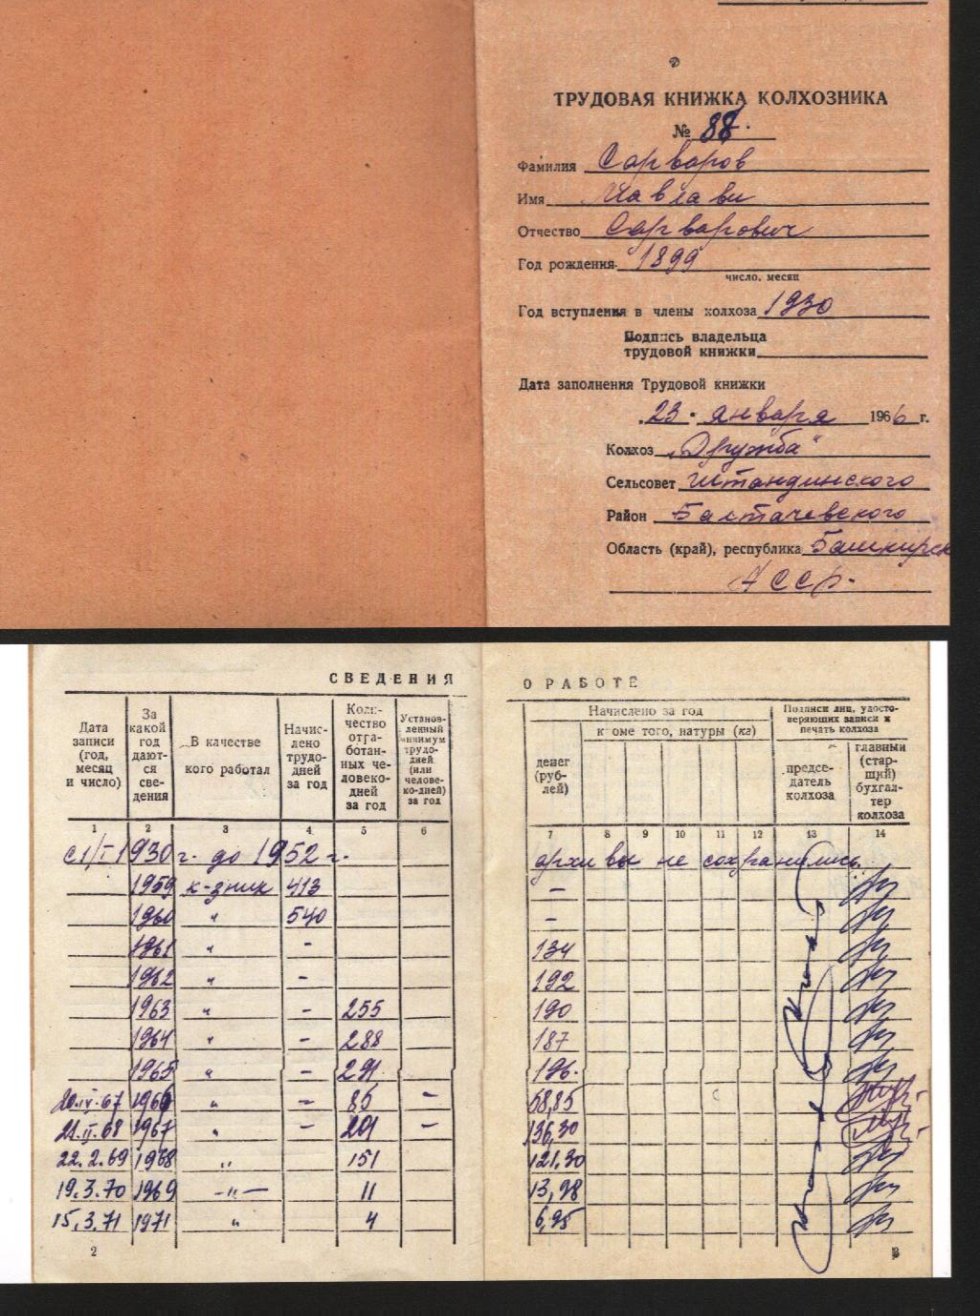 ТРУДОВАЯ КНИЖКА КОЛХОЗНИКА
№ 88.
Фамилия Сарваров
Имя
Отчество Сарварович
Год рождения 1899
число, месяц
Год вступления в члены колхоза 1930
Подпись владельца
трудовой книжки
Дата заполнения Трудовой книжки
23 января 1966 г.
Колхоз „Дружба“
Сельсовет Иштандинского
Район Балтачевского
Область (край), республика Башкирск
АССР.
СВЕДЕНИЯ О РАБОТЕ
Дата записи (год, месяц и число)
За какой год даются сведения
В качестве кого работал
Начислено трудодней за год
Количество отработанных человекодней за год
Установленный минимум трудодней (или человеко-дней) за год
Начислено за год
денег (рублей)
кроме того, натуры (кг)
Подписи лиц, удостоверяющих записи и печать колхоза
председатель колхоза
главный (старший) бухгалтер колхоза
1 2 3 4 5 6 7 8 9 10 11 12 13 14
с 1/I 1930 г. до 1952 г. архивы не сохранились.
1959 к-зник 413 –
1960 " 540 –
1961 " – 134
1962 " – 192
1963 " – 255 190
1964 " – 288 187
1965 " – 291 196.
20.IV.67 1966 " – 85 – 58,85
21.II.68 1967 " – 201 – 136,30
22.2.69 1968 " 151 121,30
19.3.70 1969 –"– 11 13,98
15.3.71 1971 " 4 6,95
2
3